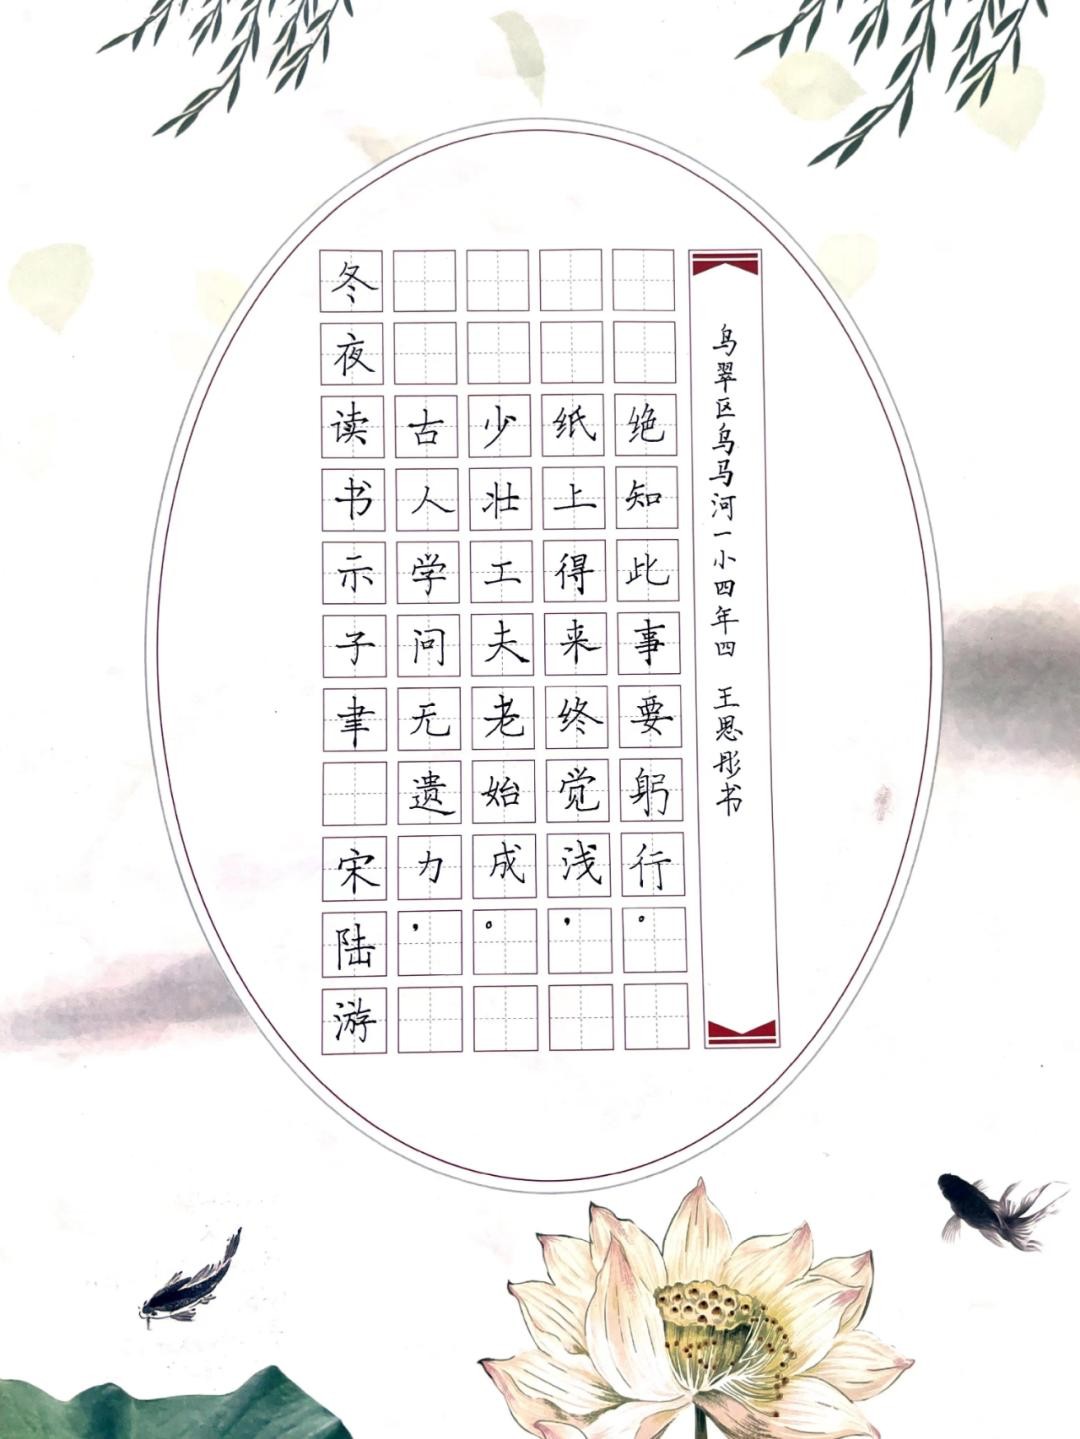 冬夜读书示子聿 宋陆游
古人学问无遗力，
少壮工夫老始成。
纸上得来终觉浅，
绝知此事要躬行。
乌翠区乌马河一小四年四 王思彤书